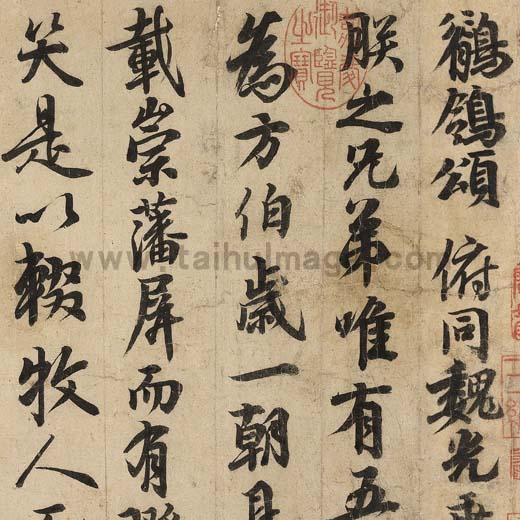 鶺鴒頌 俯同魏光
朕之兄弟唯有五
為方伯歲一朝見
載崇藩屏而有
笑是以輟牧人
嘉慶御覽之寶